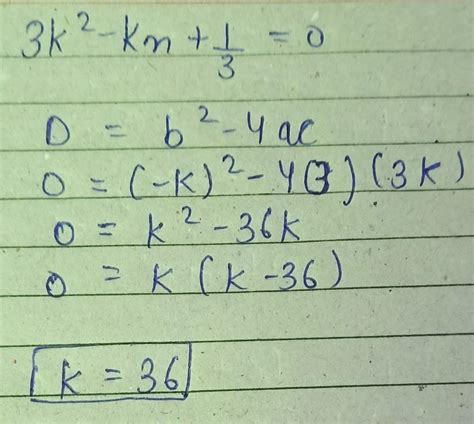 3k² - kn + 1/3 = 0
D = b² - 4ac
0 = (-k)² - 4(3)(3k)
0 = k² - 36k
0 = k(k - 36)
k = 36